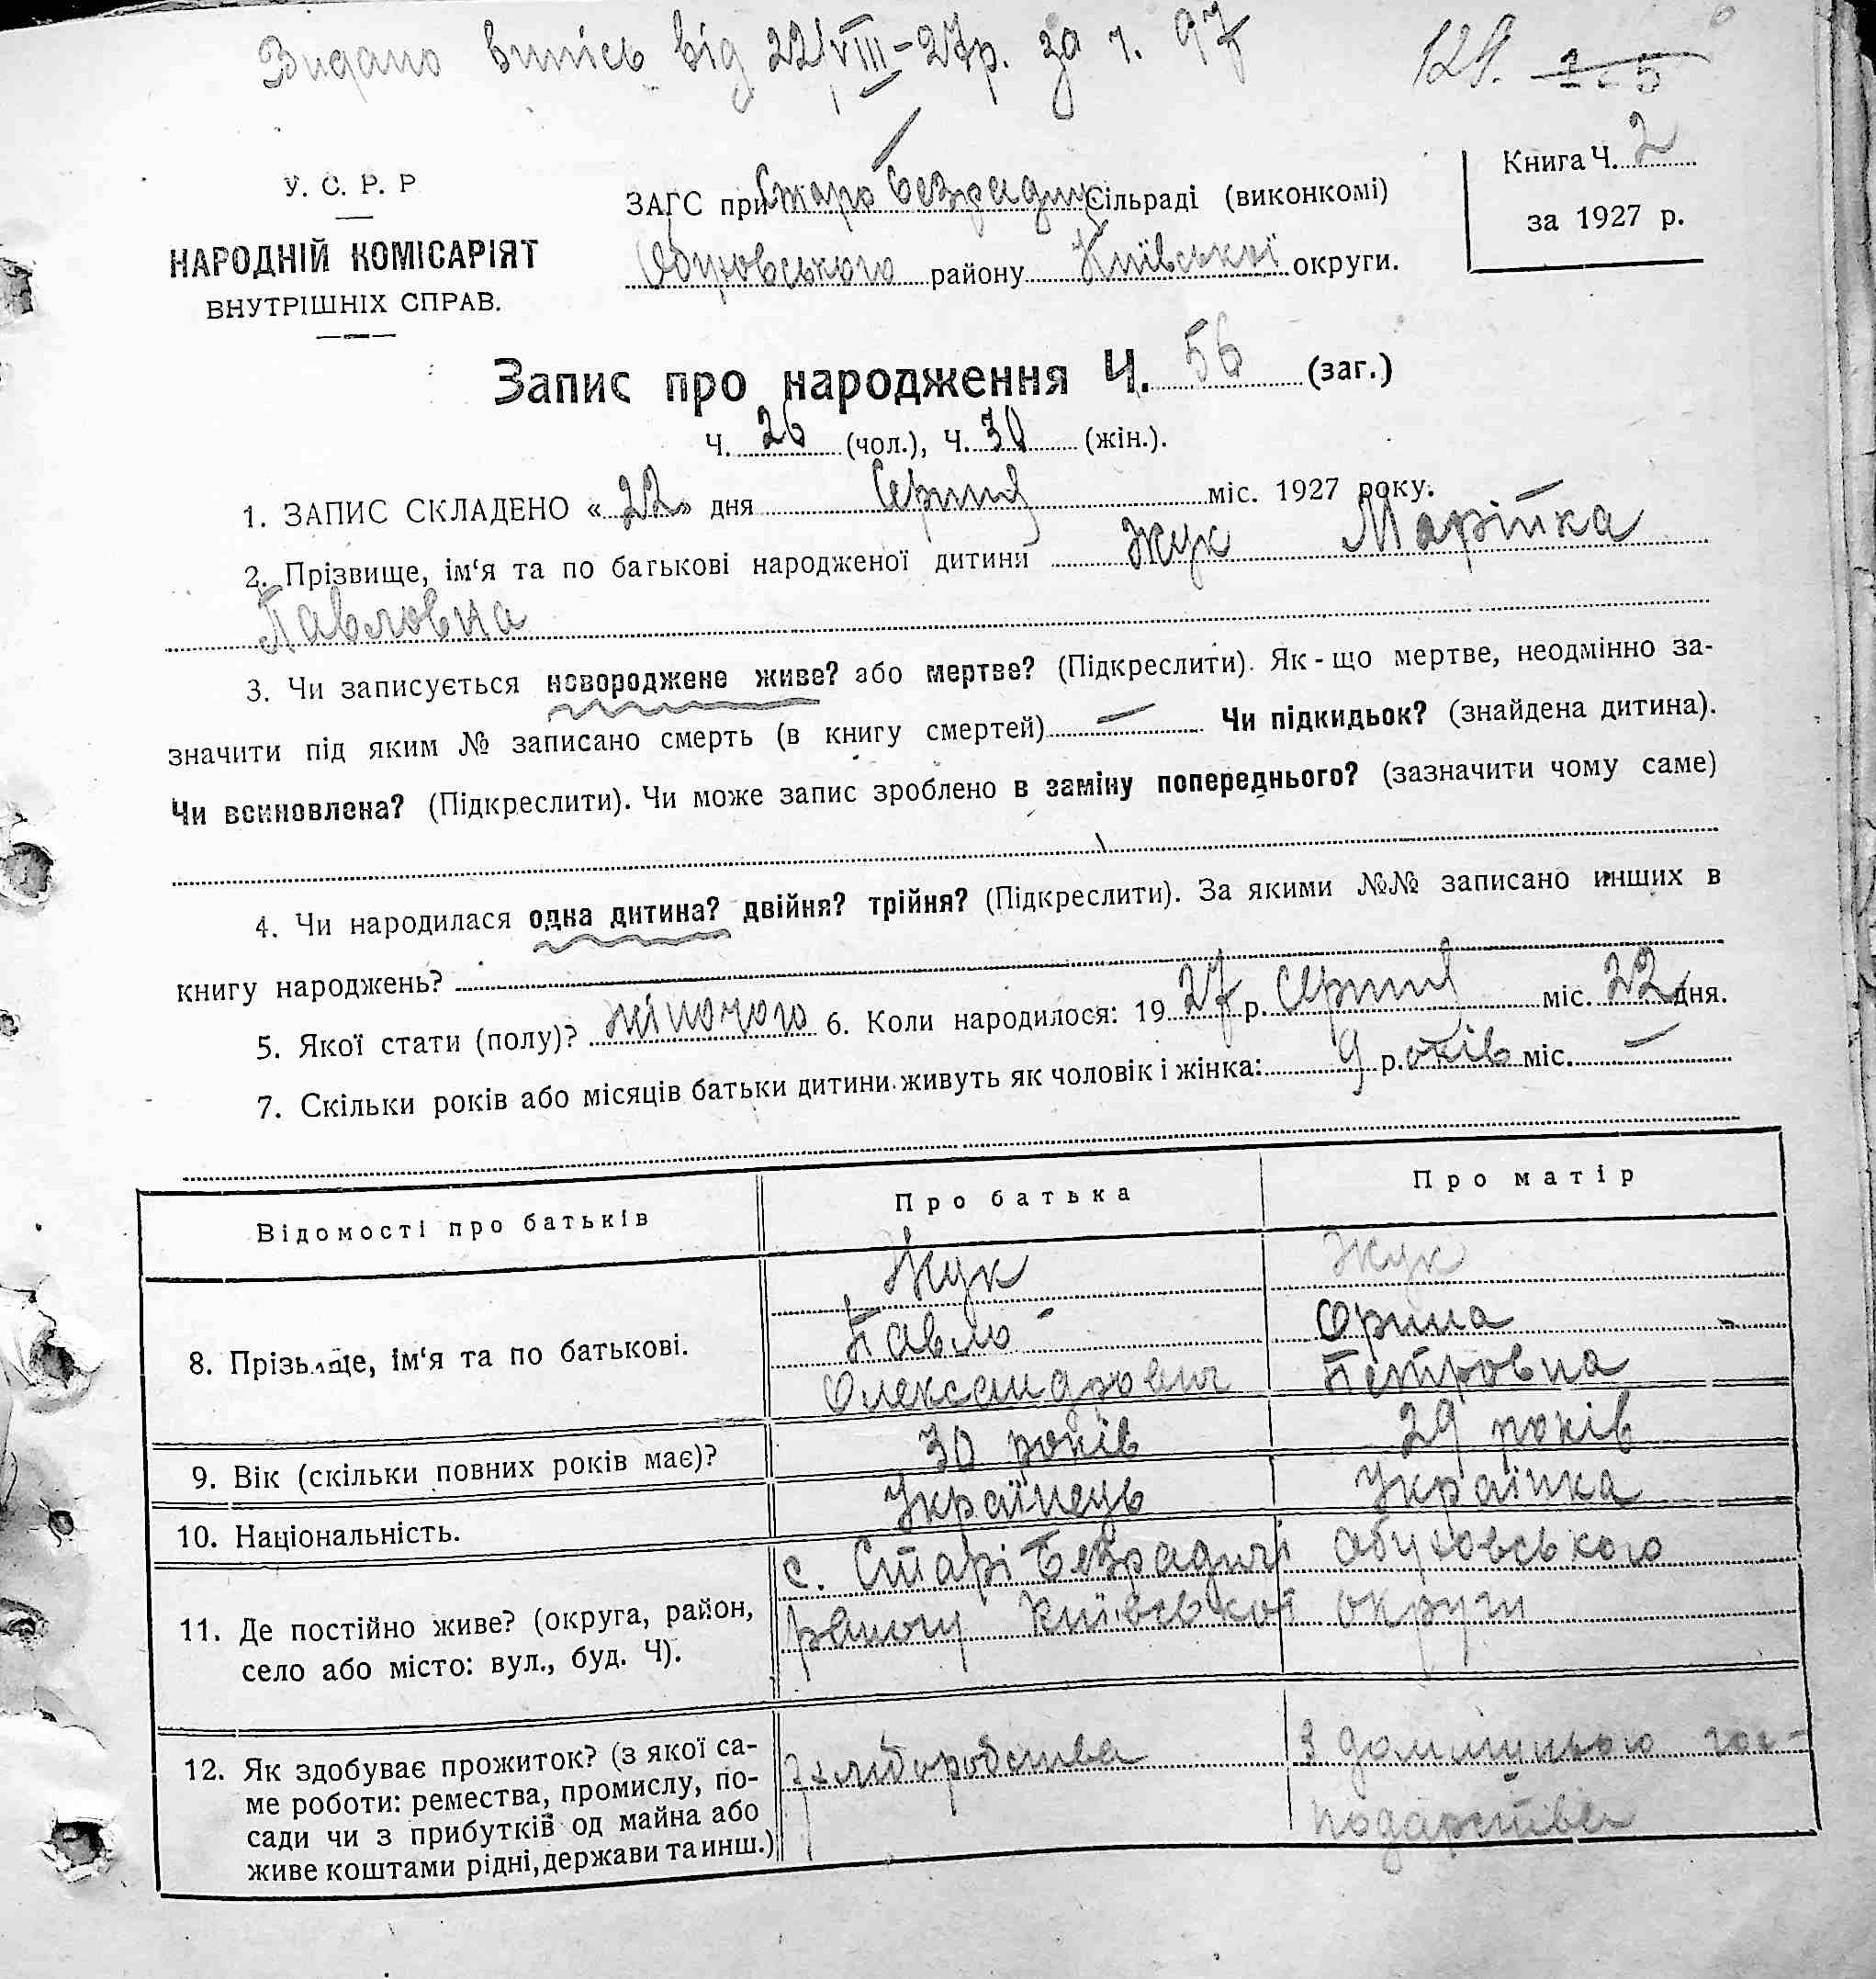 Видано випісь від 22/VIII-27р. за ч. 97
129. 
У. С. Р. Р
НАРОДНІЙ КОМІСАРІЯТ
ВНУТРІШНІХ СПРАВ.
ЗАГС при Старо Безрадиц Сільраді (виконкомі)
Обуховського району Київської округи.
Книга Ч. 2
за 1927 р.
Запис про народження Ч. 56 (заг.)
Ч. 26 (чол.), Ч. 30 (жін.).
1. ЗАПИС СКЛАДЕНО «22» дня Серпня міс. 1927 року.
2. Прізвище, ім‘я та по батькові народженої дитини Жук Марійка
Павловна
3. Чи записується новороджене живе? або мертве? (Підкреслити). Як-що мертве, неодмінно за-
значити під яким № записано смерть (в книгу смертей) — Чи підкидьок? (знайдена дитина).
Чи всиновлена? (Підкреслити). Чи може запис зроблено в заміну попереднього? (зазначити чому саме)
4. Чи народилася одна дитина? двійня? трійня? (Підкреслити). За якими №№ записано инших в
книгу народжень?
5. Якої стати (полу)? жіночого 6. Коли народилося: 1927 р. Серпня міс. 22 дня.
7. Скільки років або місяців батьки дитини живуть як чоловік і жінка: 9 р.оків міс. —
Відомості про батьків Про батька Про матір
8. Прізвище, ім‘я та по батькові.
Жук Жук
Павло Орина
Олександрович Петровна
9. Вік (скільки повних років має)? 30 років 29 років
10. Національність. Українець Українка
11. Де постійно живе? (округа, район,
село або місто: вул., буд. Ч).
с. Старі Безрадичі Обуховського
району Київської округи
12. Як здобуває прожиток? (з якої са-
ме роботи: ремества, промислу, по-
сади чи з прибутків од майна або
живе коштами рідні, держави та инш.)
з хліборобства
З домашнього гос-
подарства